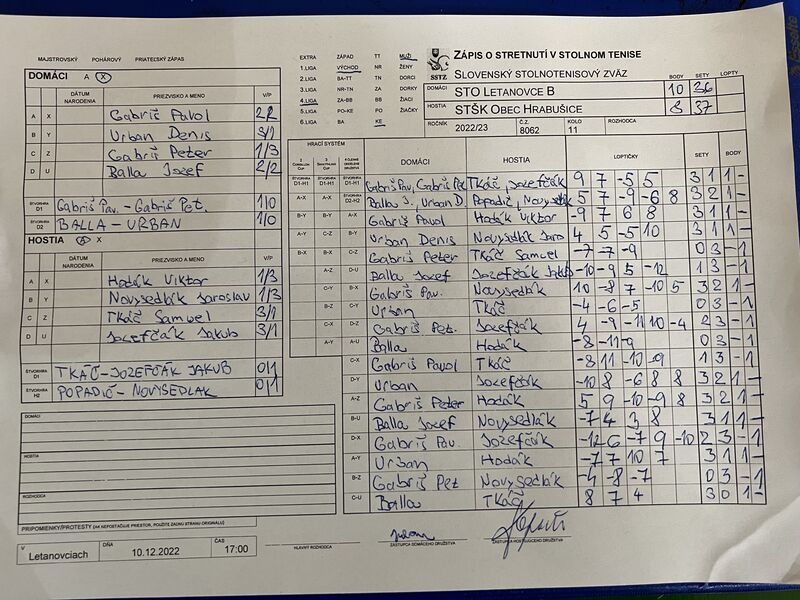 MAJSTROVSKÝ POHÁROVÝ PRIATEĽSKÝ ZÁPAS
DOMÁCI A X
DÁTUM NARODENIA PRIEZVISKO A MENO V/P
A X Gabriš Pavol 2/2
B Y Urban Denis 3/1
C Z Gabriš Peter 1/3
D U Balla Jozef 2/2
ŠTVORHRA D1 Gabriš Pav. - Gabriš Pet. 1/0
ŠTVORHRA D2 BALLA - URBAN 1/0
HOSTIA A X
DÁTUM NARODENIA PRIEZVISKO A MENO V/P
A X Hodák Viktor 1/3
B Y Novysedlák Jaroslav 1/3
C Z Tkáč Samuel 3/1
D U Jozefčák Jakub 3/1
ŠTVORHRA D1 TKÁČ-JOZEFČÁK JAKUB 0/1
ŠTVORHRA H2 POPADIČ-NOVYSEDLAK 0/1
DOMÁCI
HOSTIA
ROZHODCA
PRIPOMIENKY/PROTESTY (AK NEPOSTAČUJE PRIESTOR, POUŽITE ZADNÚ STRANU ORIGINÁLU)
V Letanovciach DŇA 10.12.2022 ČAS 17:00
EXTRA ZÁPAD TT MUŽI
1.LIGA VÝCHOD NR ŽENY
2.LIGA BA-TT TN DORCI
3.LIGA NR-TN ZA DORKY
4.LIGA ZA-BB BB ŽIACI
5.LIGA PO-KE PO ŽIAČKY
6.LIGA BA KE
SSTZ
ZÁPIS O STRETNUTÍ V STOLNOM TENISE
SLOVENSKÝ STOLNOTENISOVÝ ZVÄZ BODY SETY LOPTY
DOMÁCI STO LETANOVCE B 10 36
HOSTIA STŠK OBEC HRABUŠICE 8 37
ROČNÍK 2022/23 Č.Z. 8062 KOLO 11 ROZHODCA
HRACÍ SYSTÉM
DOMÁCI HOSTIA LOPTIČKY SETY BODY
ŠTVORHRA D1-H1 ŠTVORHRA D1-H1 ŠTVORHRA D1-H1 Gabriš Pav, Gabriš Pe Tkáč, Jozefčák 9 7 -5 5 3 1 1
A-X A-X ŠTVORHRA D2-H2 Balla J. Urban D. Popadič, Novysedl 5 7 -9 -6 8 3 2 1
B-Y B-Y A-X Gabriš Pavol Hodák Viktor -9 7 6 8 3 1 1
A-Y C-Z B-Y Urban Denis Novysedlák Jaro 4 5 -5 10 3 1 1 -
B-X B-X C-Z Gabriš Peter Tkáč Samuel -7 -7 -9 0 3 - 1
A-Z D-U Balla Jozef Jozefčák Jakub -10 -9 5 -12 1 3 - 1
C-Y B-X Gabriš Pav. Novysedlák 10 -8 7 -10 5 3 2 1 -
B-Z C-Y Urban Tkáč -4 -6 -5 0 3 - 1
C-X D-Z Gabriš Pet. Jozefčák 4 -9 -11 10 -4 2 3 - 1
A-Y A-U Balla Hodák -8 -11 -9 0 3 - 1
C-X Gabriš Pavol Tkáč -8 11 -10 -9 1 3 - 1
D-Y Urban Jozefčák -10 8 -6 8 8 3 2 1 -
A-Z Gabriš Peter Hodák 5 9 -10 -9 8 3 2 1 -
B-U Balla Jozef Novysedlák -7 4 3 8 3 1 1 -
D-X Gabriš Pav. Jozefčák -12 6 -7 9 -10 2 3 - 1
A-Y Urban Hodák -7 7 10 7 3 1 1 -
B-Z Gabriš Pet Novysedlák -4 -8 -7 0 3 - 1
C-U Balla Tkáč 8 7 4 3 0 1 -
HLAVNÝ ROZHODCA ZÁSTUPCA DOMÁCEHO DRUŽSTVA ZÁSTUPCA HOSŤUJÚCEHO DRUŽSTVA